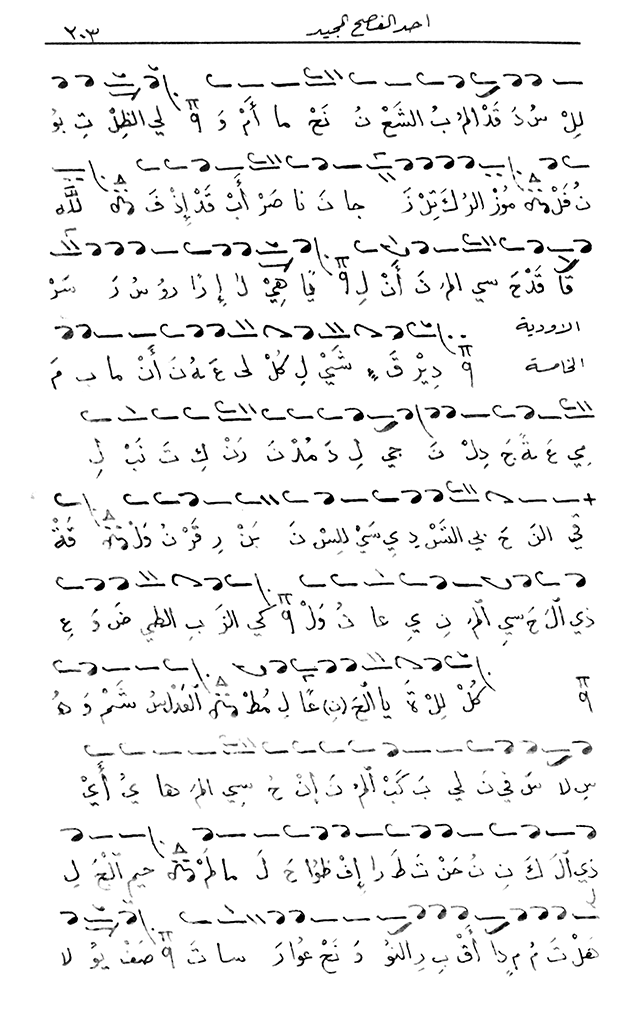 احد الفصح المجيد ٢٠٣
لِلْ سُ دَ قَدْ المُ بُ الشَعْ نُ نَحْ ما أَمْ وَ لي الظِلْ تِ بو
نُ قَلْ مُوزْ الرُ كَ تِزْ زَ جا نَ نا صَرْ أَبْ قَدْ إِذْ فَ للَّه
قا قَدْ حَ سي المَ نَ أَنْ لِ فيا هِيْ لا إِ زا رو سُ رَ سَرْ
الاودية
الخامسة دِيرْ قَ ءٍ شَيْ لِ كُلْ لى عَ هُ نَ أَنْ ما بِ مَ
مِي عَ ةُ جَ دِلْ نَ جي لِ دَ مُدْ نَ رَنْ كِ تَ نَبْ لِ
في النَ حَ يي الشَرْ دِي سَيْ لِلِسْ نَ بَنْ رِ قَرْ نُ وَلْ قَةْ
ذي اَلْ حَ سي المَ نِ يِ عا نُ وَلْ كي الزَ بِ الطي ضَ وَ عِ
كُلْ لِلْ ةَ يا الْحَ (نِ) عًا لِ مُطْ العَدْلِ سُ شَمْ وَ هُ
سِ لا سَ في نَ لي بَ كَبْ المَ نَ إنْ حُ سي المَ ها يُ أَيْ
ذي اَلْ كَ نِ نُ حَنْ تَ طَ را إِفْ ظوا حَ لَ ما طَمْ حيمِ الْجَ لِ
هَلْ تَ مُ مِ دا أَقْ بِ رِ النو وَ نَحْ عوا رَ سا تَ صَفْ يو لا